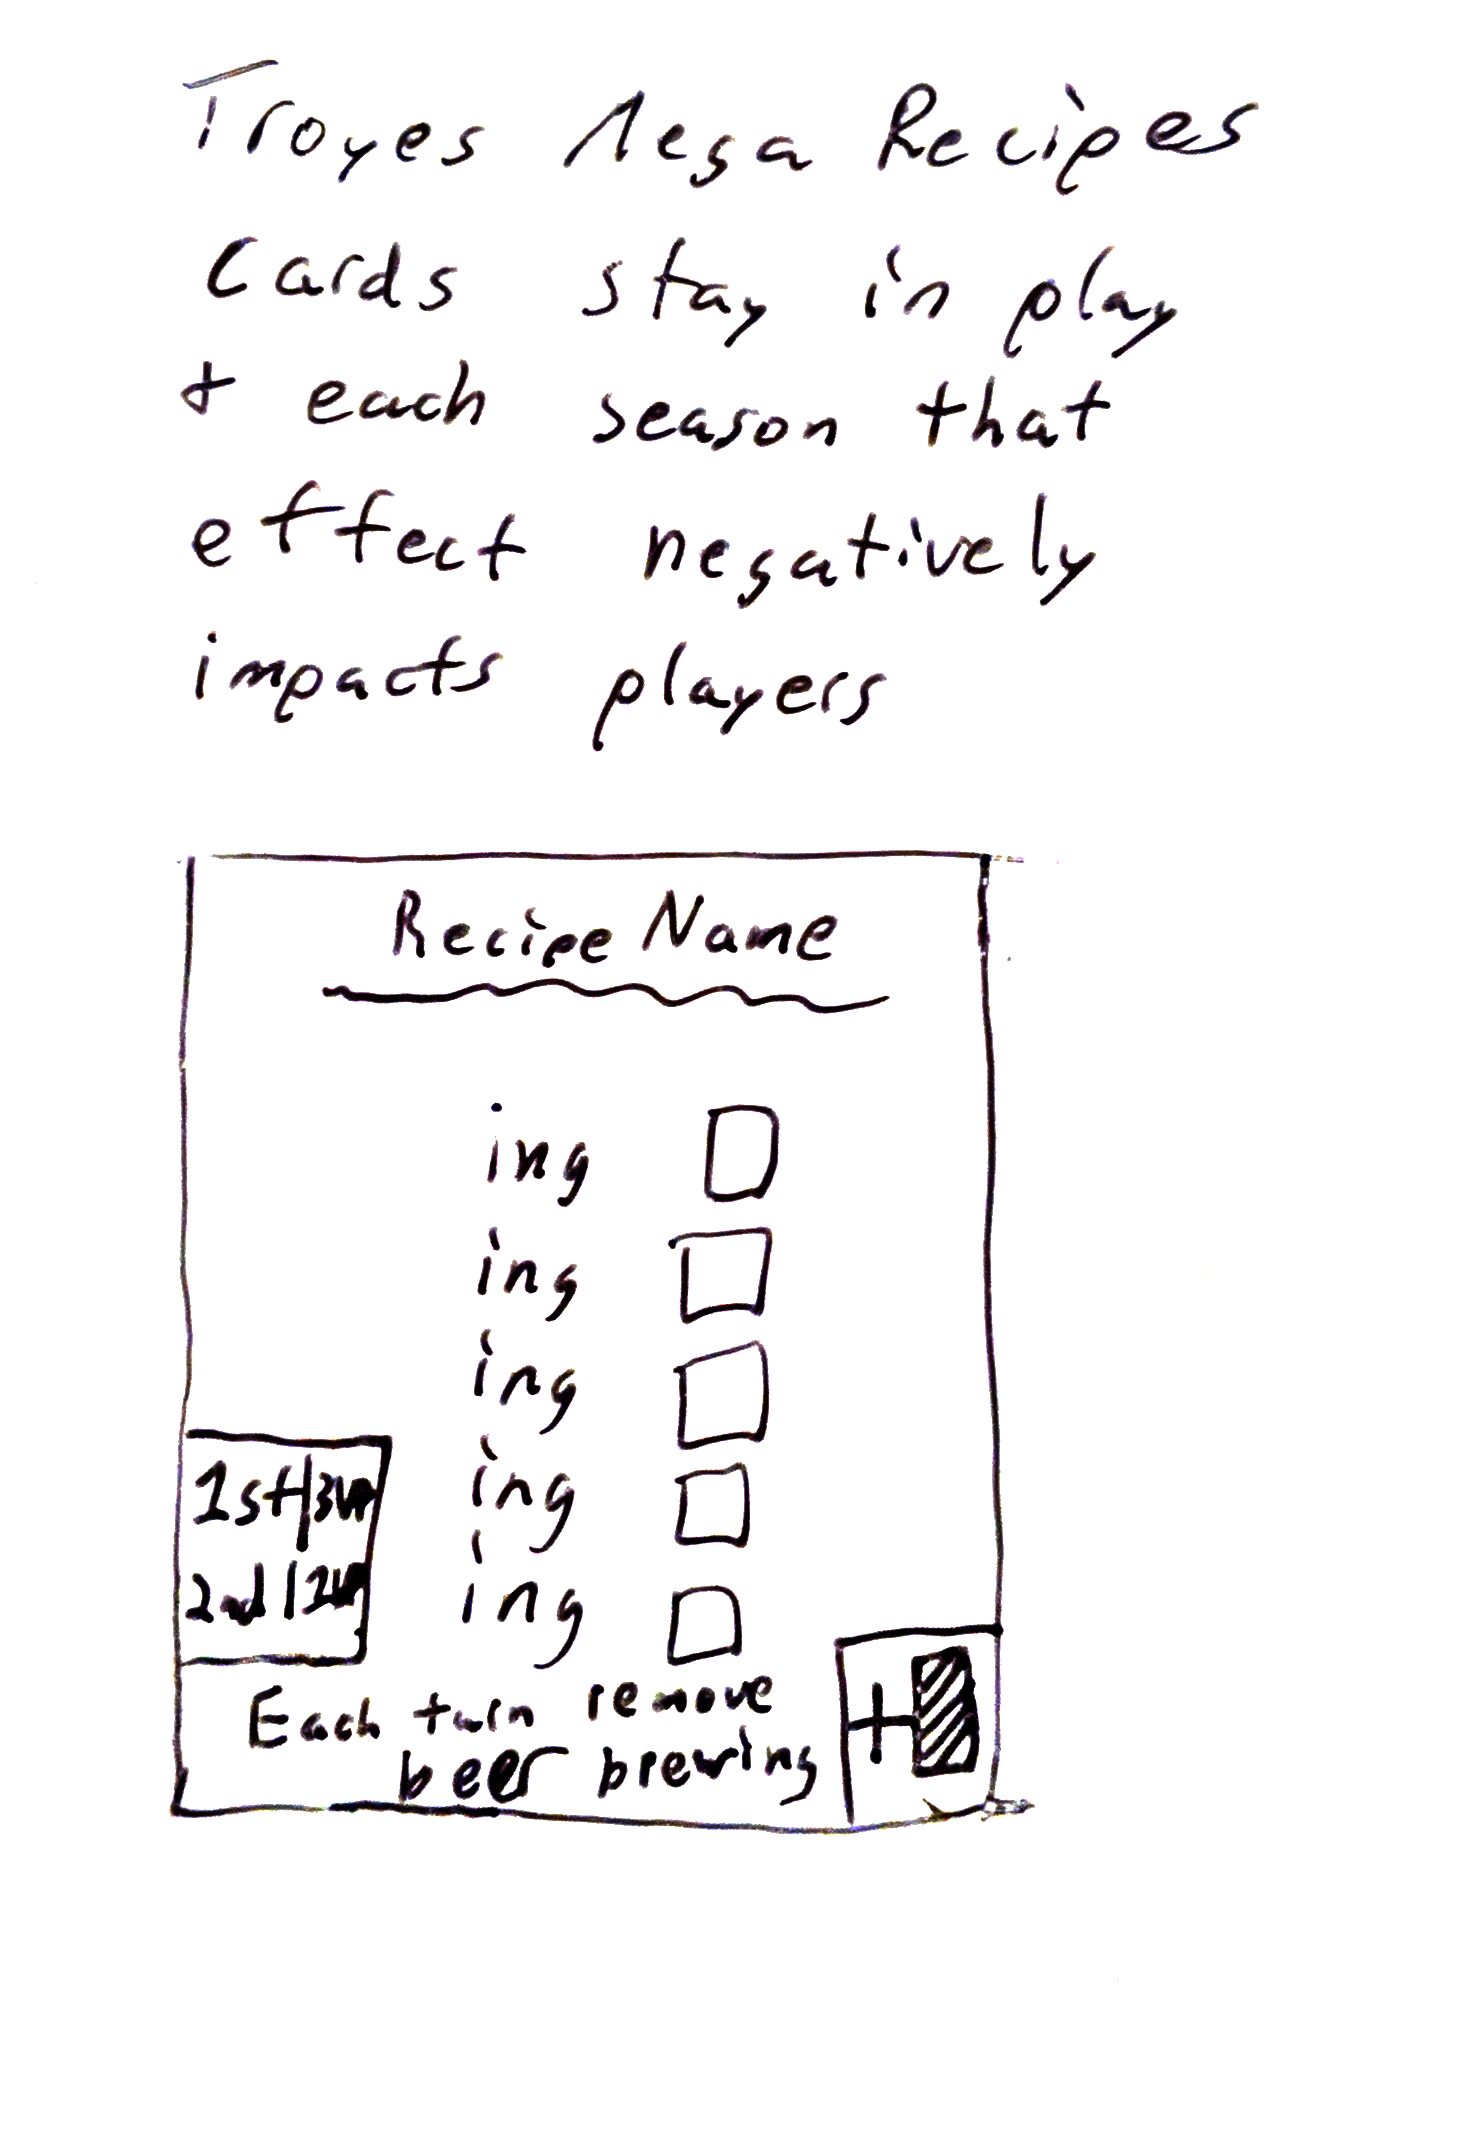 Troyes Mega Recipes
Cards stay in play
+ each season that
effect negatively
impacts players
Recipe Name
ing
ing
ing
ing
ing
1st|3VP
2nd|1VP
Each turn remove
beer brewing
+